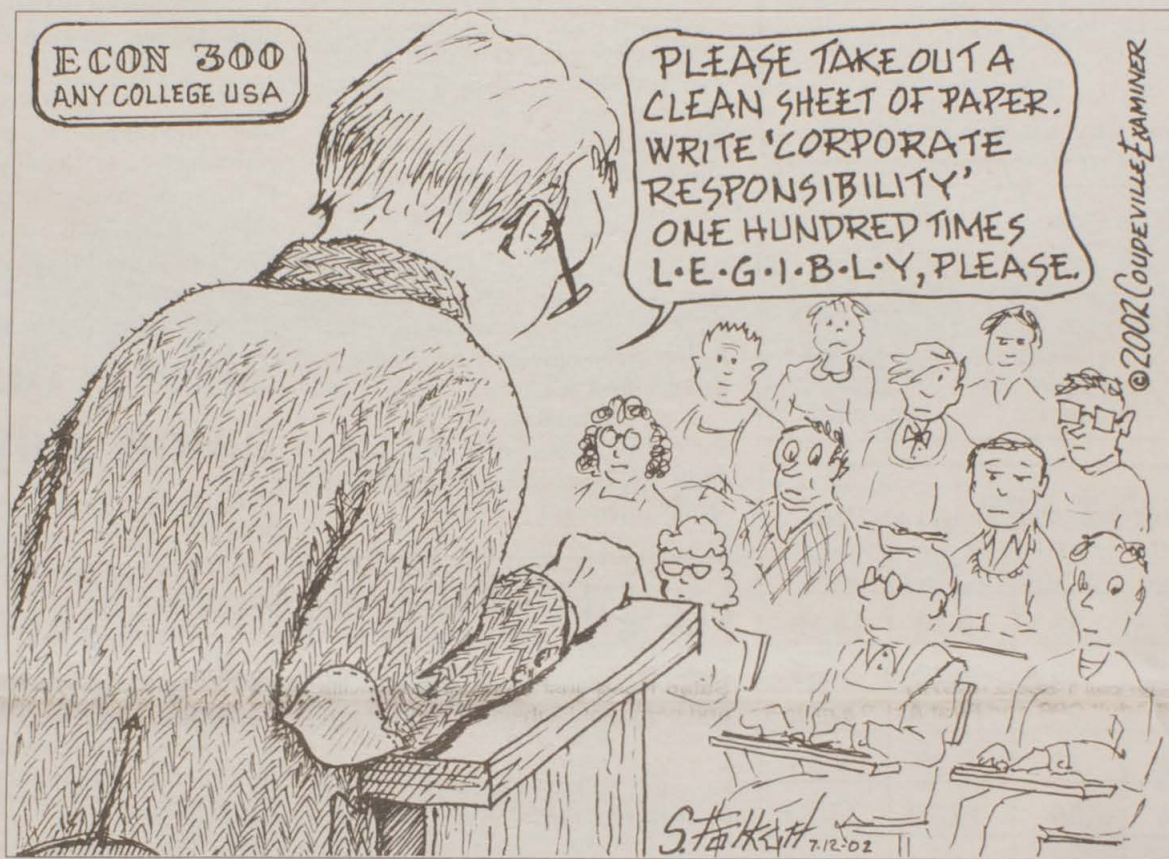 ECON 300
ANY COLLEGE USA
PLEASE TAKE OUT A
CLEAN SHEET OF PAPER.
WRITE 'CORPORATE
RESPONSIBILITY'
ONE HUNDRED TIMES
L·E·G·I·B·L·Y, PLEASE.
©2002 COUPEVILLE EXAMINER
7·12·02